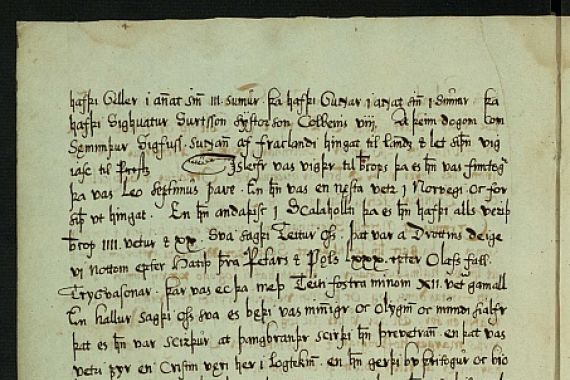 hafþi Geller i annat sinn III. sumur. þa hafþi Gunnar i annat sinn I. sumur. þa
hafþi Sighuatur Surtsson systorson Colbeins viij. A þeim dogom kom
Sęmunþur Sigfuss. sunann af fraclandi hingat til lands & let siþan vig
iasc til Prests. Isleifr vas vigþr til byscops þa es hann vas fimtøgr
þa vas Leo septimus pave. En hann vas en nesta vetr i Norvegi oc for
siþan ut hingat. En hann andaþisc i Scalaholti þa es hann hafþi alls veriþ
byscop IIII. vetur & XX. Sva sagþi Teitur oss. þat var a Drottins deige
vi nottom epter hatiþ þeirra Petars & Pols LXXX. epter Olafs fall
Tryggvasonar. þar vas ec þa meþ Teiti fostra minom XII. vetra gamall
En hallur sagþi oss sva es bęþi vas minnigr oc olyginn oc munþi sialfr
þat es hann var scirþur at þangbranþr scirþi hann þrevetran. en þat vas
vetri fyr en Cristni veri her i logtekin. en hann gerþi bu þritogur oc bio